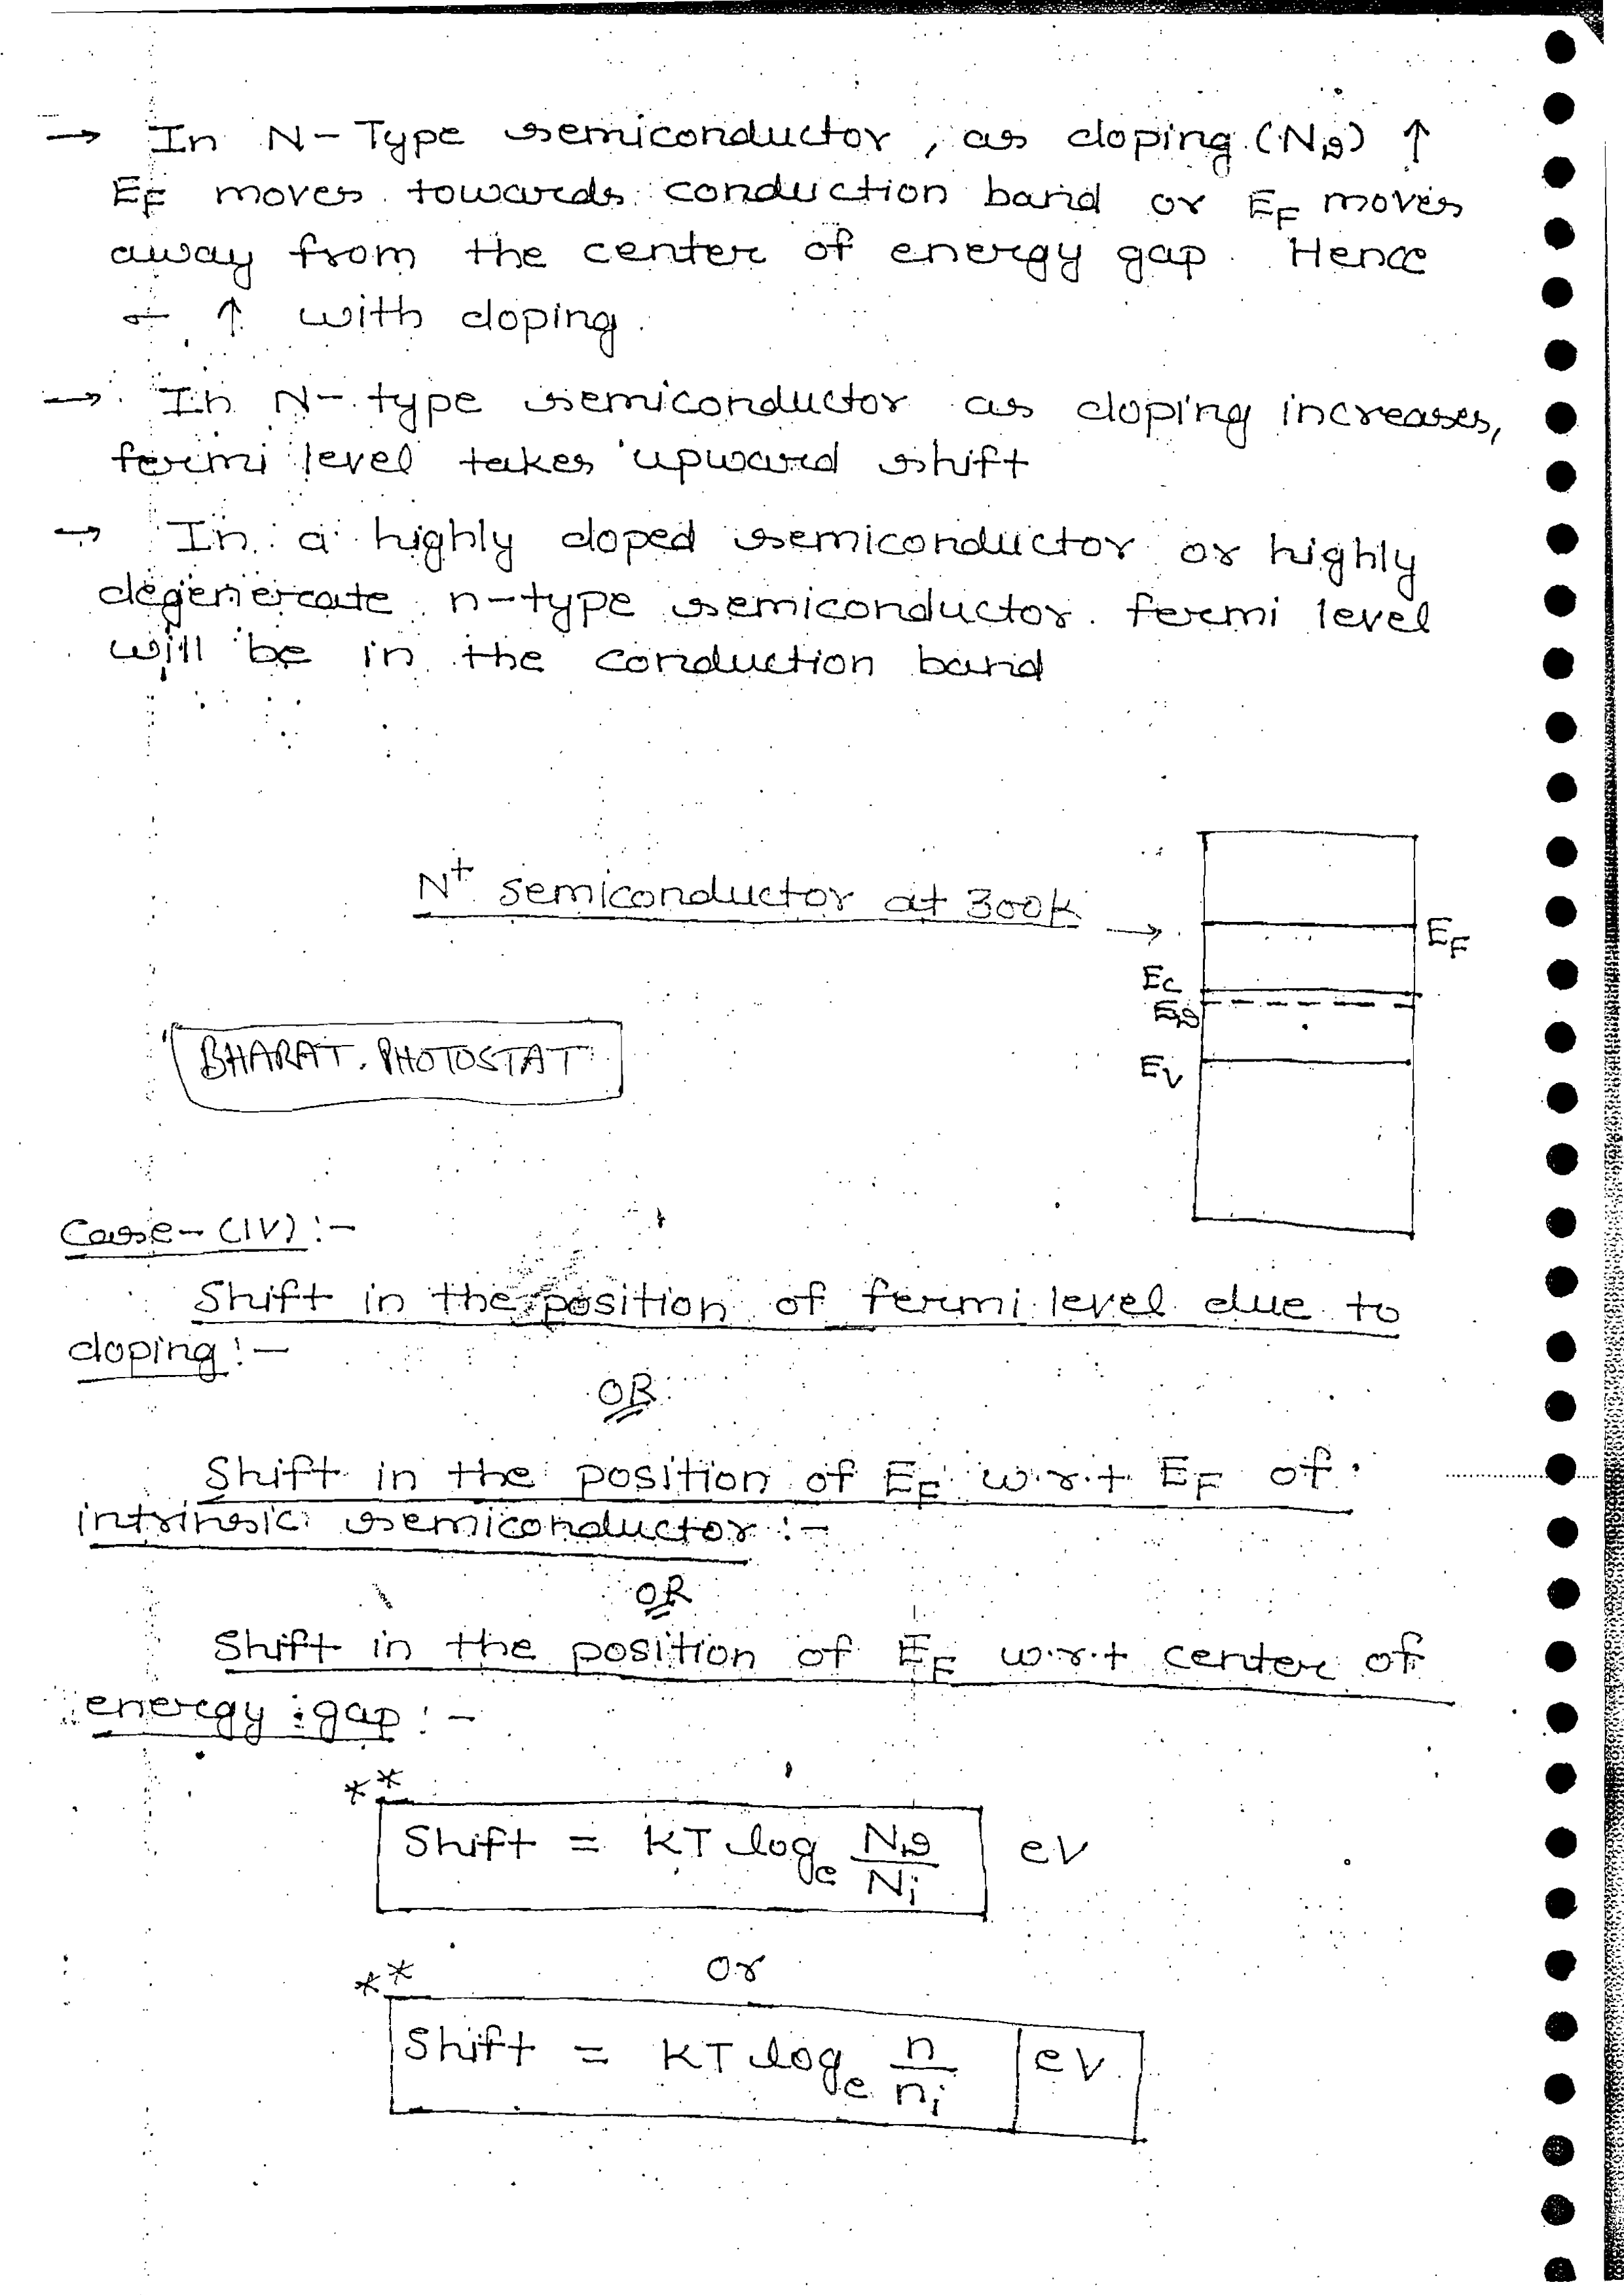 → In N-Type semiconductor, as doping (N_D) ↑
E_F moves towards conduction band or E_F moves
away from the center of energy gap. Hence
σ ↑ with doping.
→ In N-type semiconductor as doping increases,
fermi level takes upward shift
→ In a highly doped semiconductor or highly
degenerate n-type semiconductor. fermi level
will be in the conduction band
N⁺ semiconductor at 300K →
E_F
E_C
E_D
E_V
BHARAT PHOTOSTAT
Case-(IV):-
Shift in the position of fermi level due to
doping:-
OR
Shift in the position of E_F w.r.t E_F of
intrinsic semiconductor:-
OR
Shift in the position of E_F w.r.t center of
energy gap:-
**
Shift = KT log_e N_D/N_i eV
or
**
Shift = KT log_e n/n_i eV